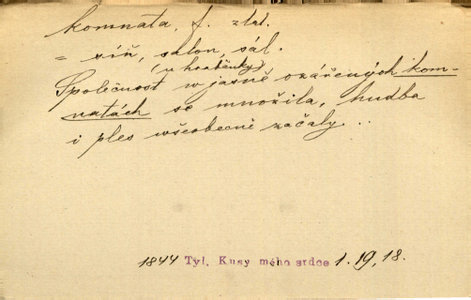 komnata, f. zst.
= síň, salon, sál.
(u hraběnky)
Společnost w jasně ozářených kom-
natách se množila, hudba
i ples wšeobecně začaly ..
1844 Tyl, Kusy mého srdce 1. 19, 18.